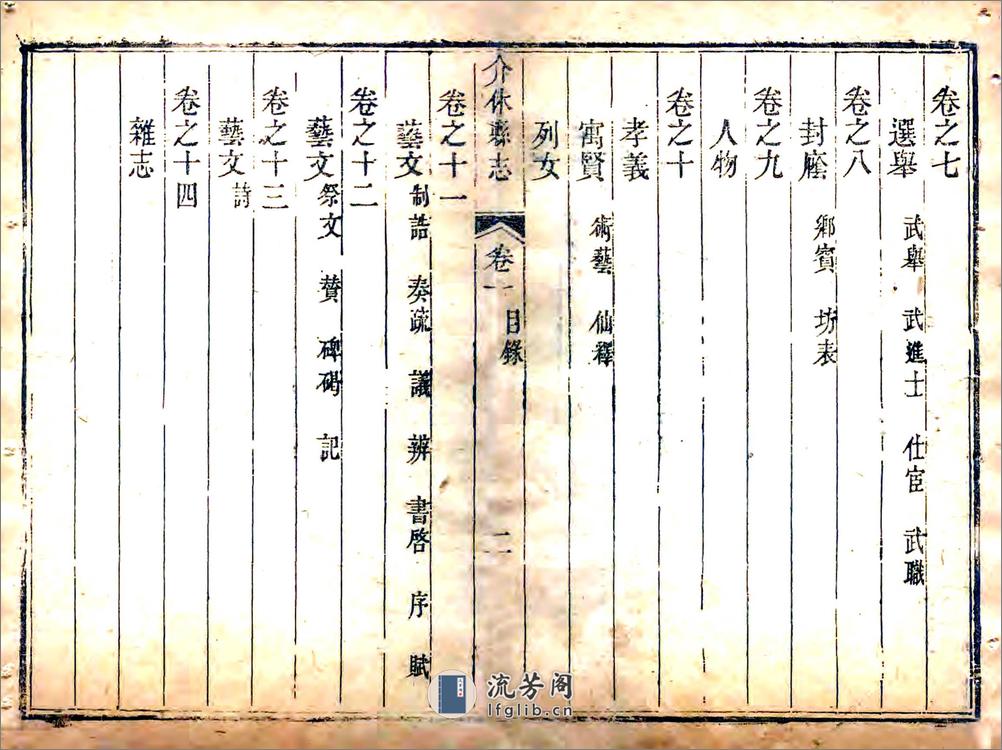 卷之七
選舉 武舉 武進士 仕宦 武職
卷之八
封廕 鄉賓 坊表
卷之九
人物
卷之十
孝義
寓賢 術藝 仙釋
列女
介休縣志 卷一 目錄 二
卷之十一
藝文 制誥 奏疏 議 辨 書啓 序 賦
卷之十二
藝文 祭文 贊 碑碣 記
卷之十三
藝文 詩
卷之十四
雜志
流芳阁
lfglib.cn